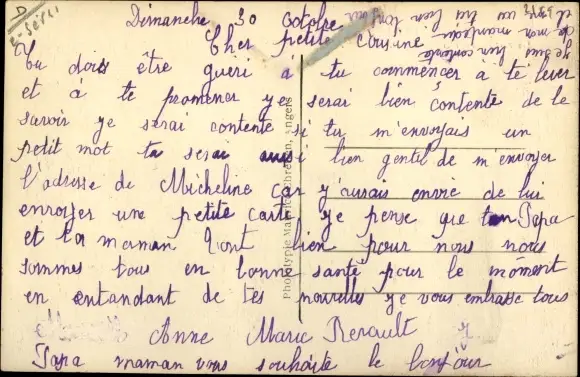 Dimanche 30 octobre
Cher petite cousine
Tu dois être queri a tu commencer a te lever
et a te promener ye serai bien contente de le
savoir ye serai contente si tu m'envoyais un
petit mot tu serai aussi bien gentil de m'envoyer
l'adresse de Micheline car y'aurais envie de lui
envoyer une petite carte ye pense que ton Papa
et ta maman vont bien pour nous nous
sommes tous en bonne santé pour le moment
en entandant de tes nouvelles ye vous embrasse tous
Anne Marie Renault
Papa maman vous souhaite le bonjour
ye suis bien contente
de mon
et
Phototypie
Angers